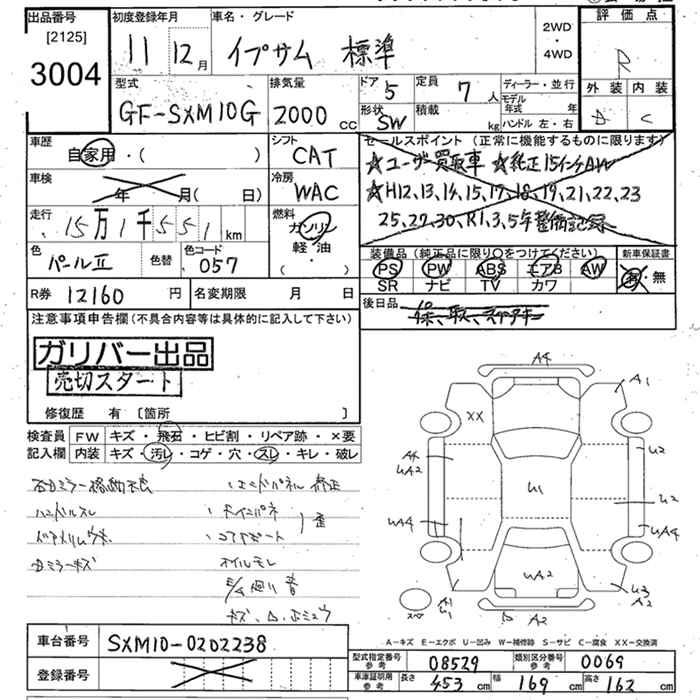 出品番号
[2125]
3004
初度登録年月
11 12月
車名・グレード
イプサム 標準
2WD
・
4WD
評価点
R
外装 内装
D C
型式
GF-SXM10G
排気量
2000 cc
ドア 5
定員 7人
形状 SW
積載 kg
ディーラー・並行
モデル年式 年
ハンドル 左・右
車歴
自家用・( )
シフト
CAT
車検
年 月( 日)
冷房
WAC
走行
15万1千551 km
燃料
ガソリン
軽・油
・( )
色
パールⅡ
色替
色コード
057
R券 12160 円
名変期限 月 日
セールスポイント (正常に機能するものに限ります)
☆ユーザー買取車 ☆純正15インチAW
☆H12,13,14,15,17,18,19,21,22,23
25,27,30,R1,3,5年整備記録
装備品(純正品に限り○をつけてください)
PS PW ABS エアB AW
SR ナビ TV カワ
新車保証書
有・無
後日品
注意事項申告欄(不具合内容等は具体的に記入して下さい)
ガリバー出品
売切スタート
修復歴 有 [箇所 ]
検査員
記入欄
FW キズ・飛石・ヒビ割・リペア跡・×要
内装 キズ・汚レ・コゲ・穴・スレ・キレ・破レ
ハンドルスレ
オイルモレ
A4
A1
XX
A4
UA2
U2
U1
U2
UA4
UA4
UA2
U3
A2
A2
U1
D A2
A-キズ E-エクボ U-凹み W-補修跡 S-サビ C-腐食 XX-交換済
車台番号 SXM10-0202238
登録番号
型式指定番号
参考
08529
類別区分番号
参考
0069
車庫証明用
参考
長さ 453 cm 幅 169 cm 高さ 162 cm